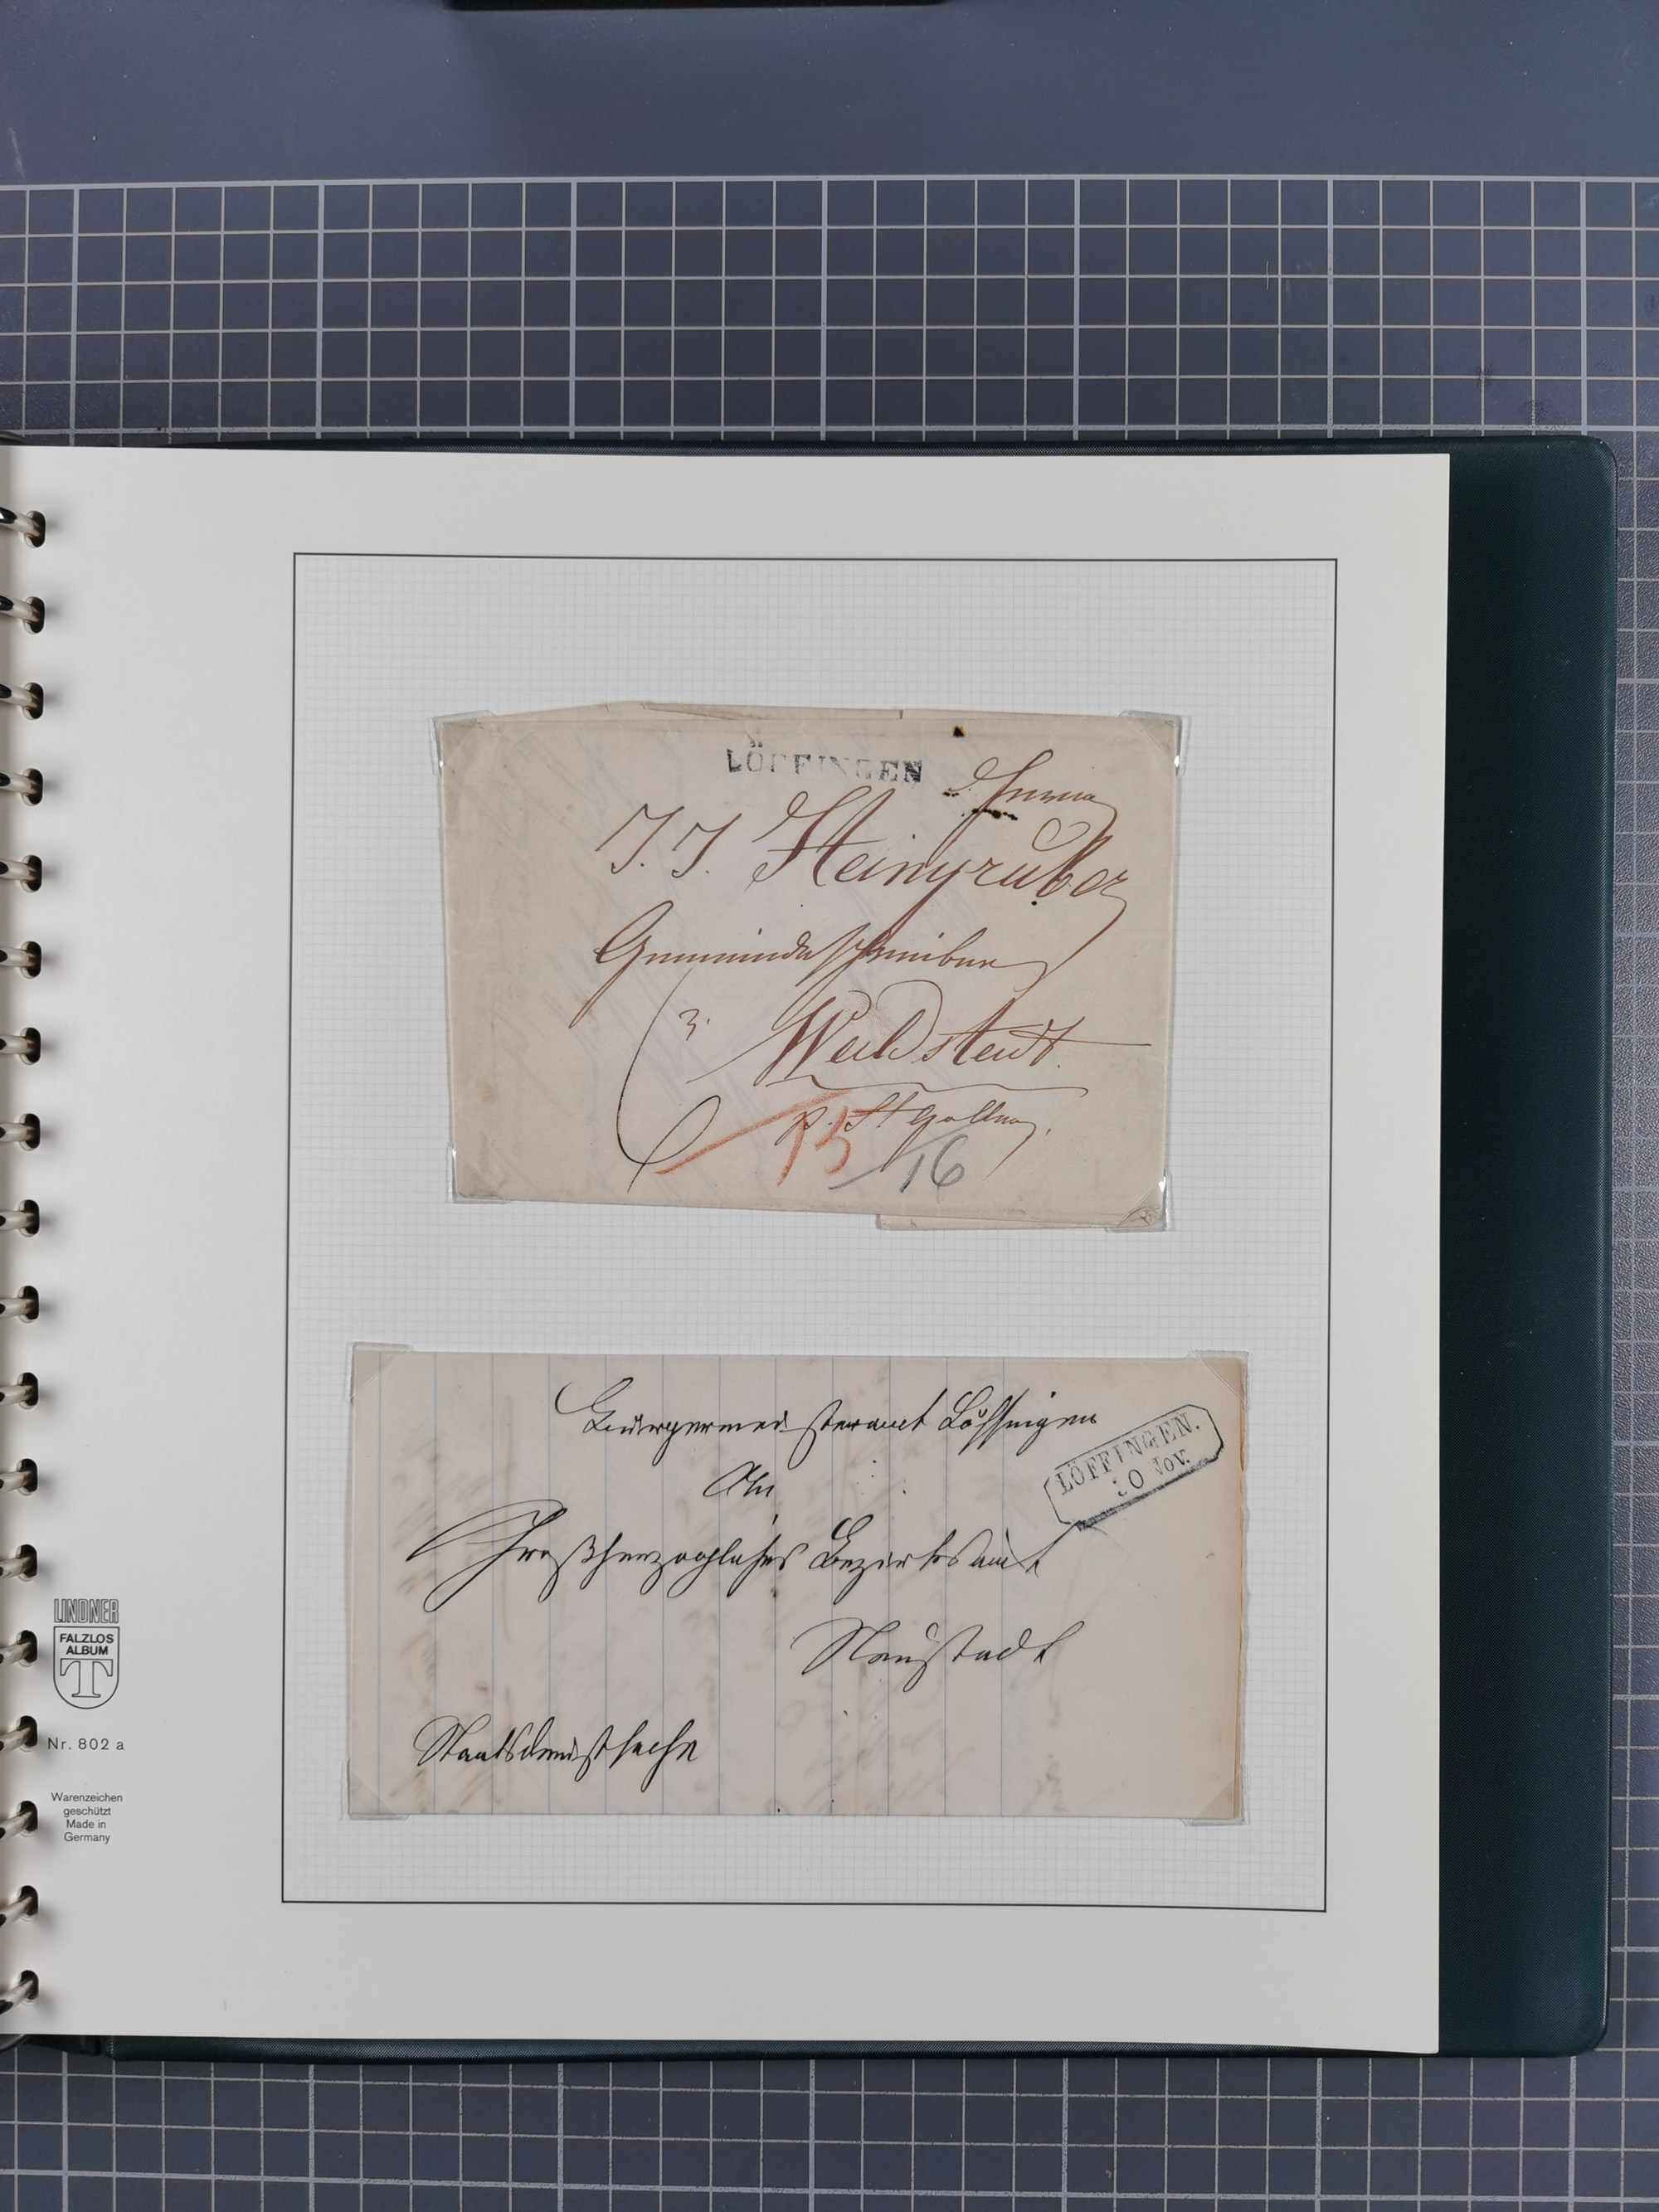 LÖFFINGEN
Herrn
J. J. Steingruber
Gemeindeschreiber
3.
Waldstadt
p. St. Gallen.
15
16
Buergermeisteramt Löffingen
LÖFFINGEN.
Nov.
An
Großherzogliches Bezirksamt
Neustadt
Staatsdienstsache
LINDNER
FALZLOS
ALBUM
T
Nr. 802 a
Warenzeichen
geschützt
Made in
Germany